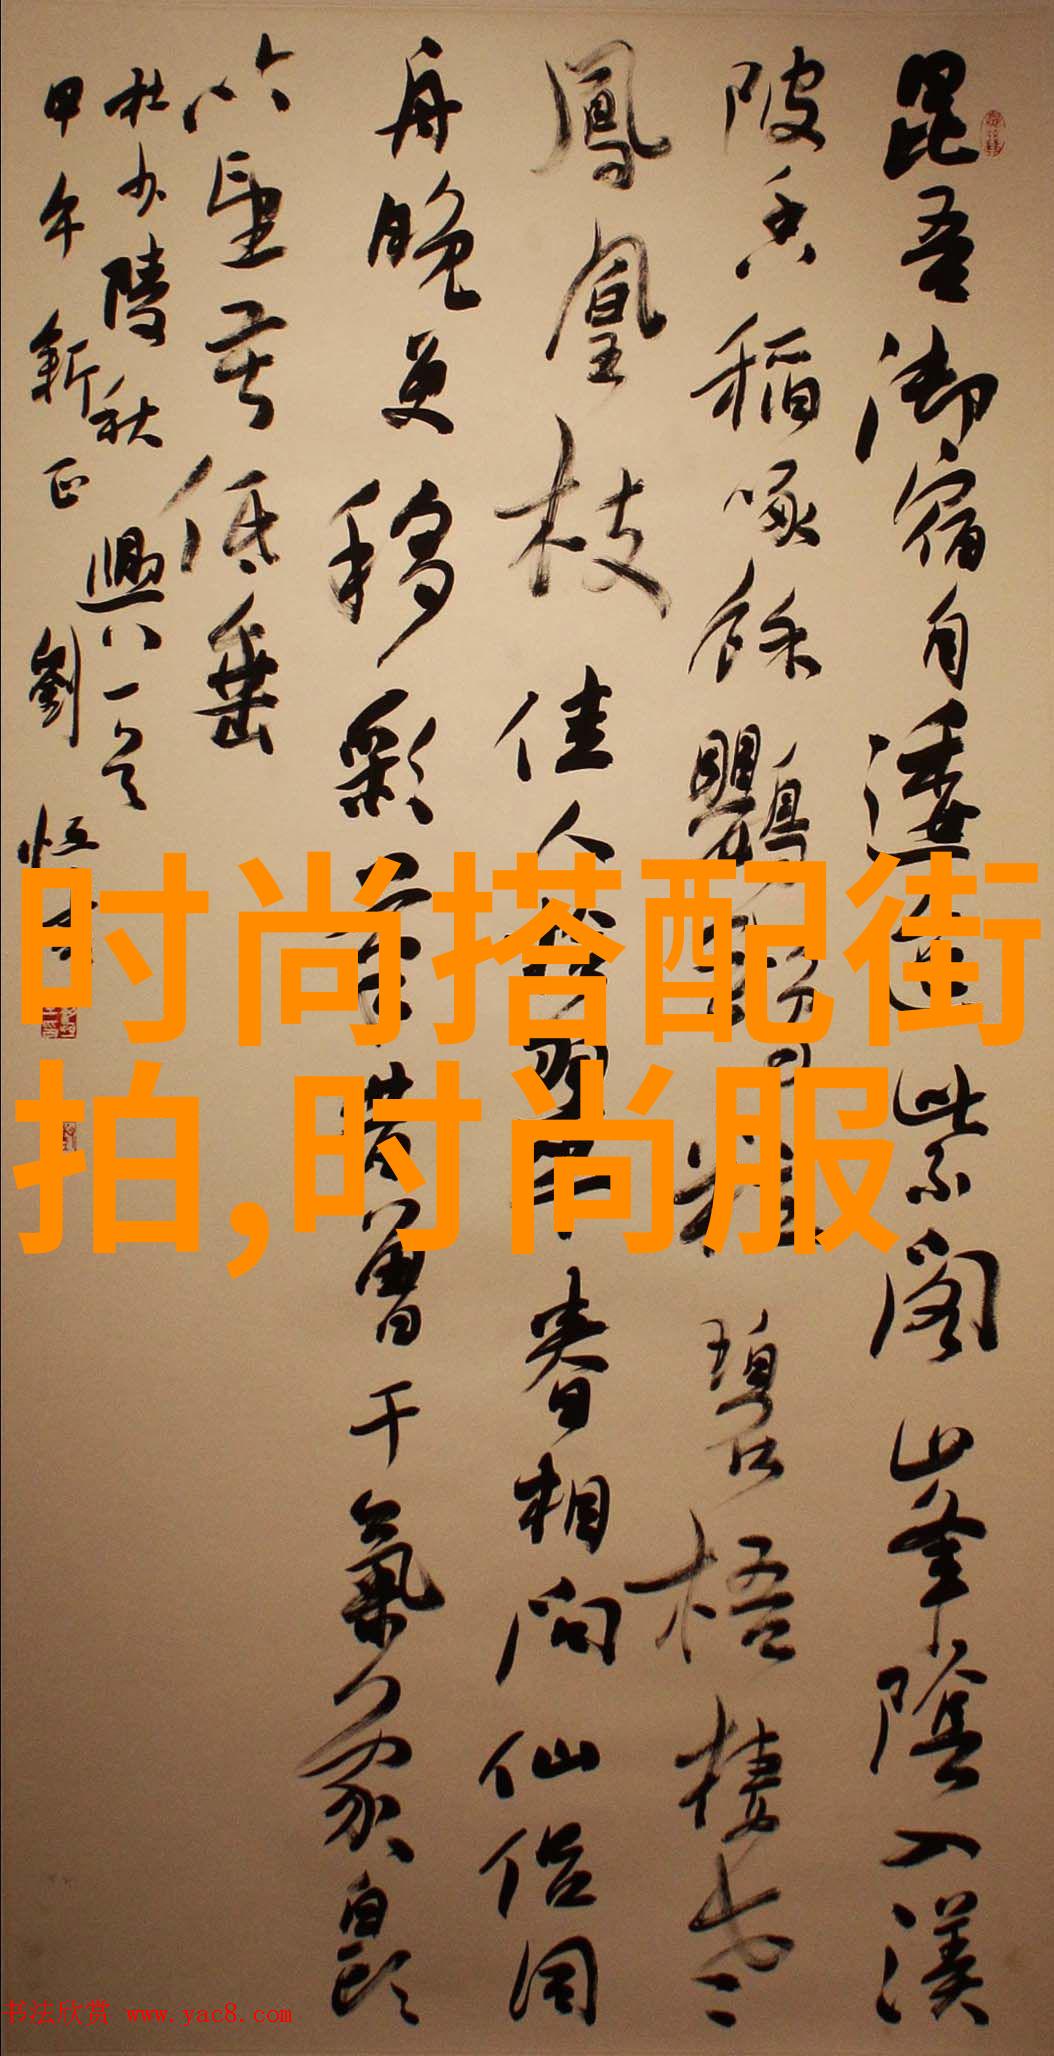 昆吾御宿自逶迤紫阁峰阴入渼
陂香稻啄余鹦鹉粒碧梧栖老
凤凰枝佳人拾翠春相问仙侣同
舟晚更移彩笔昔曾干气象白头
吟望苦低垂
杜少陵秋兴八一首
甲午新正刘恒
时尚搭配街
拍,时尚服
书法欣赏 www.yac8.com